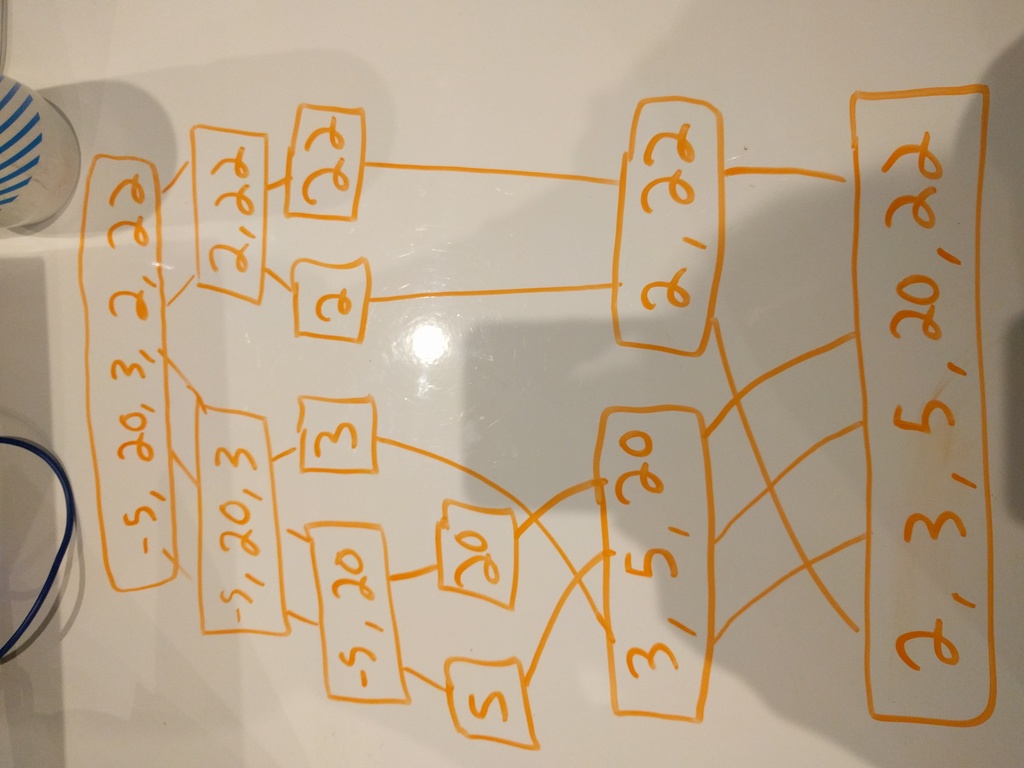 -5, 20, 3, 2, 22
-5, 20, 3
2, 22
-5, 20
3
2
22
5
20
3, 5, 20
2, 22
2, 3, 5, 20, 22